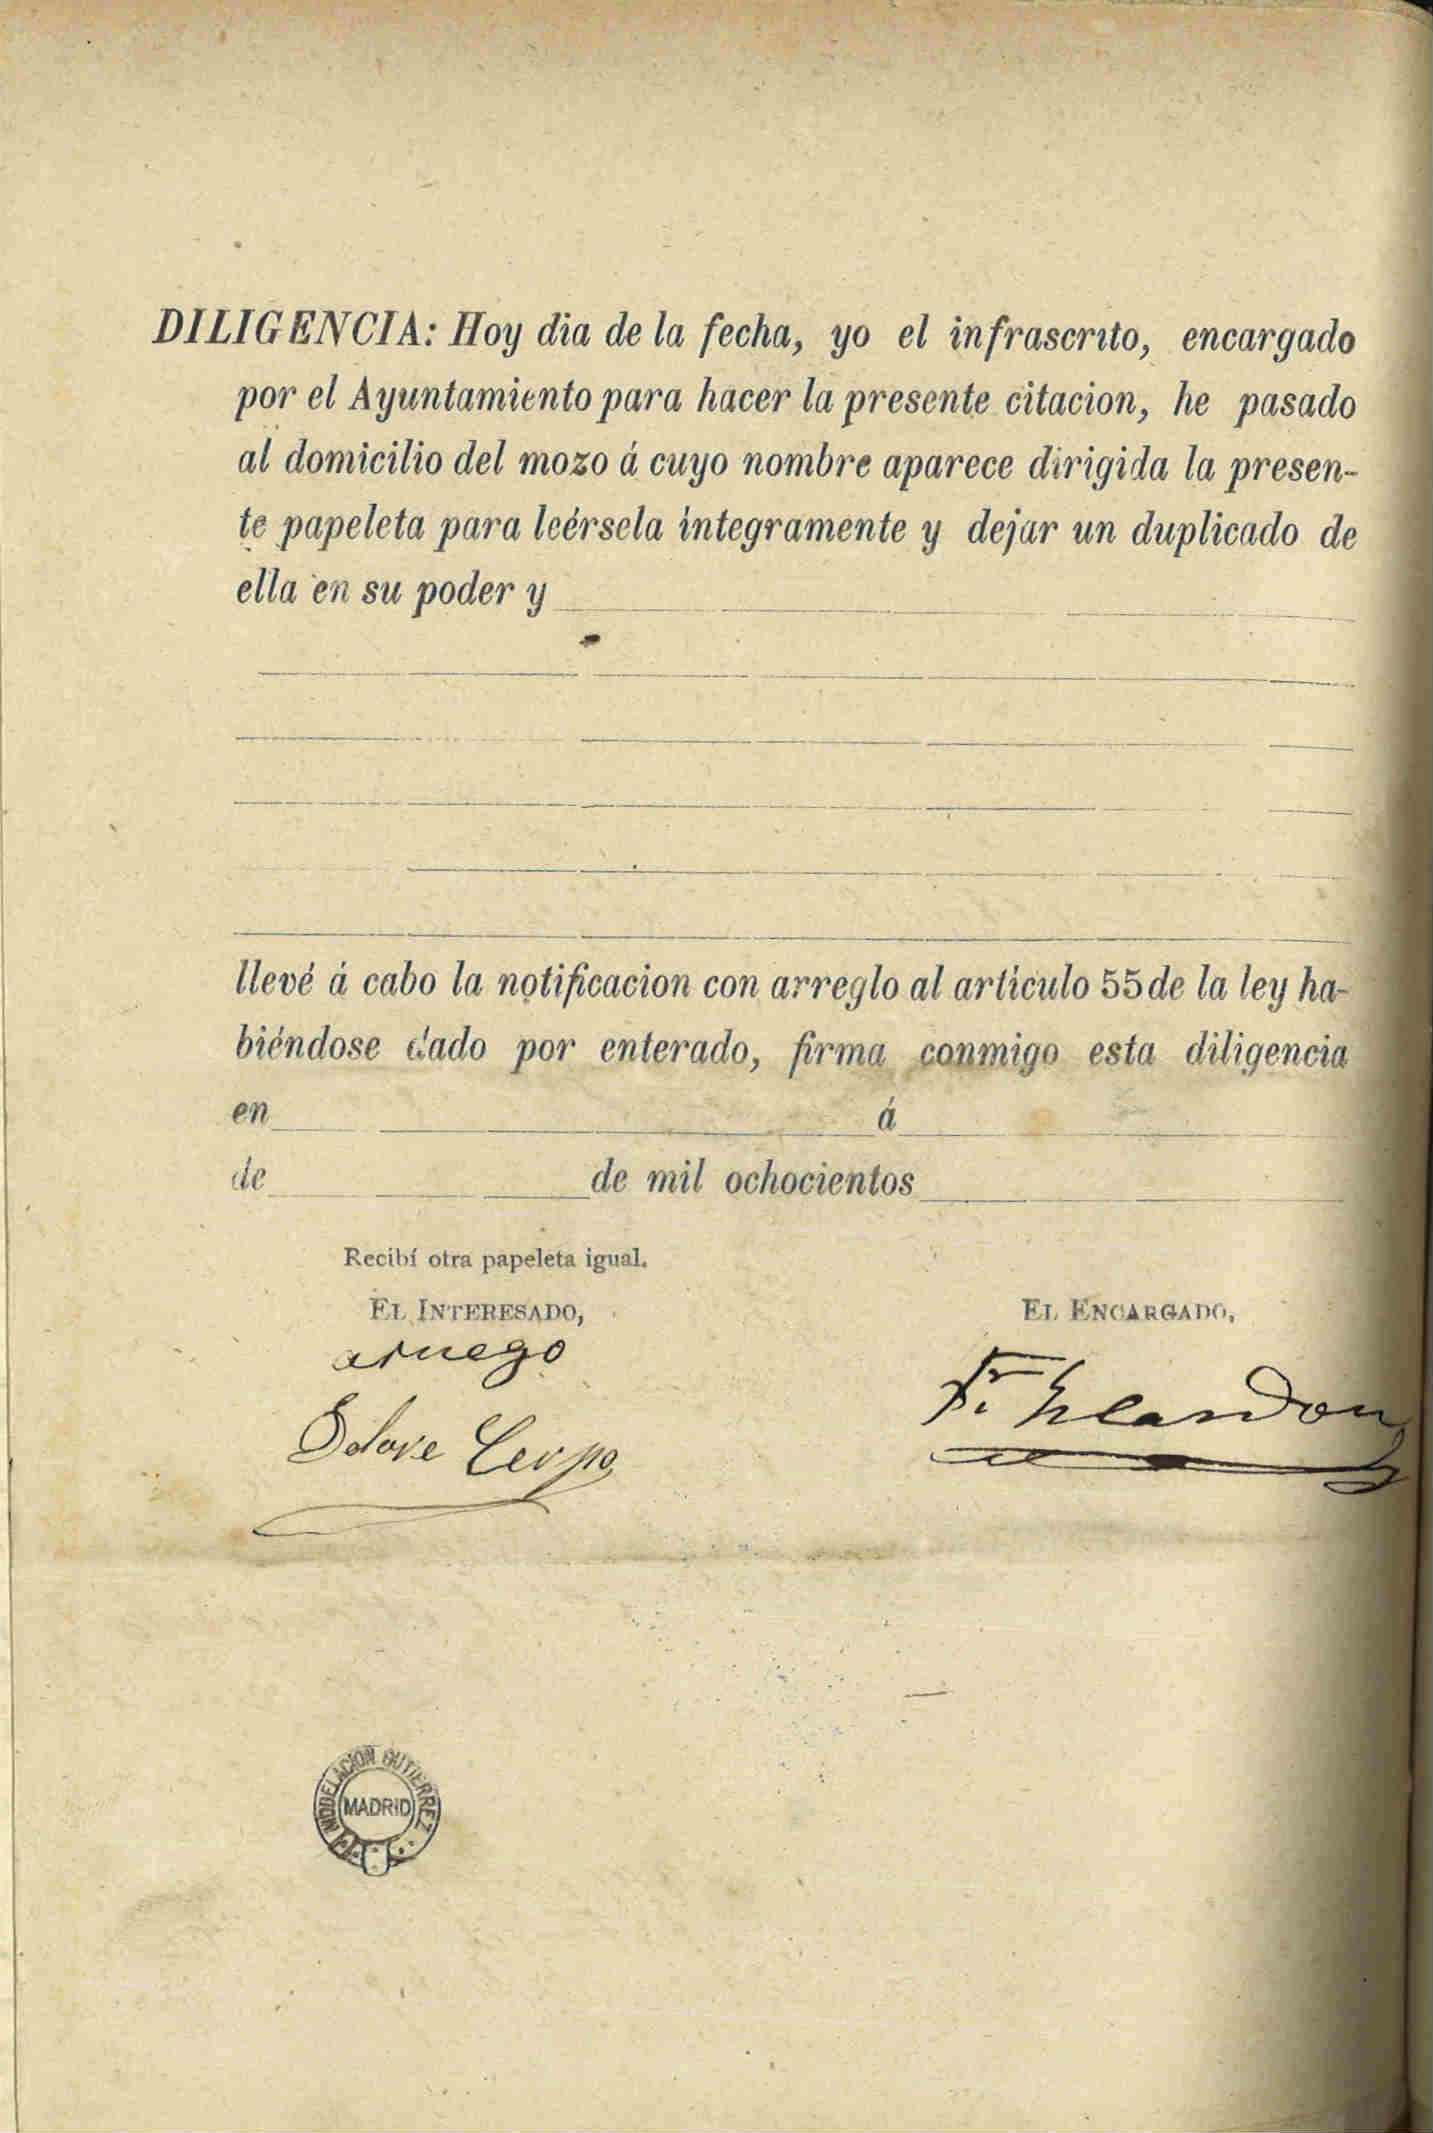 DILIGENCIA: Hoy dia de la fecha, yo el infrascrito, encargado
por el Ayuntamiento para hacer la presente citacion, he pasado
al domicilio del mozo á cuyo nombre aparece dirigida la presen-
te papeleta para leérsela íntegramente y dejar un duplicado de
ella en su poder y
llevé á cabo la notificacion con arreglo al artículo 55 de la ley ha-
biéndose dado por enterado, firma conmigo esta diligencia
en á
de de mil ochocientos
Recibí otra papeleta igual.
EL INTERESADO,
EL ENCARGADO,
aruego
MODELACION GUTIERREZ
MADRID